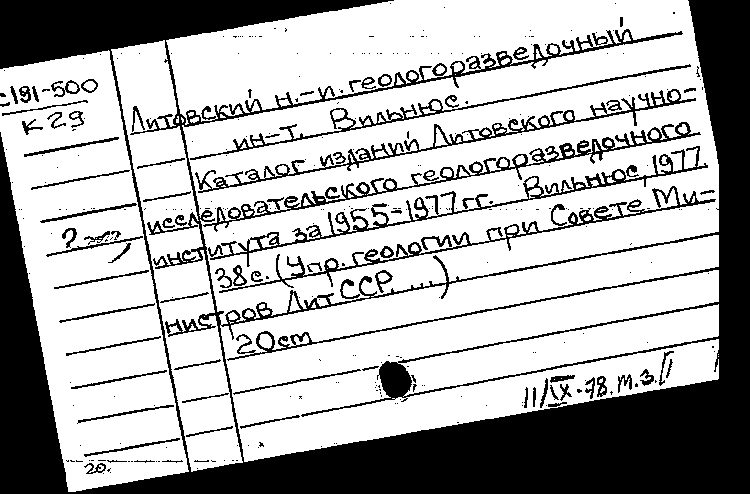 С191-500
К29
Литовский н.-и. геологоразведочный
ин-т. Вильнюс.
Каталог изданий Литовского научно-
исследовательского геологоразведочного
института за 1955-1977 гг. Вильнюс, 1977.
38с. (Упр. геологии при Совете Ми=
нистров Лит ССР. ...).
20см
11/IX-78. м.з.
20.